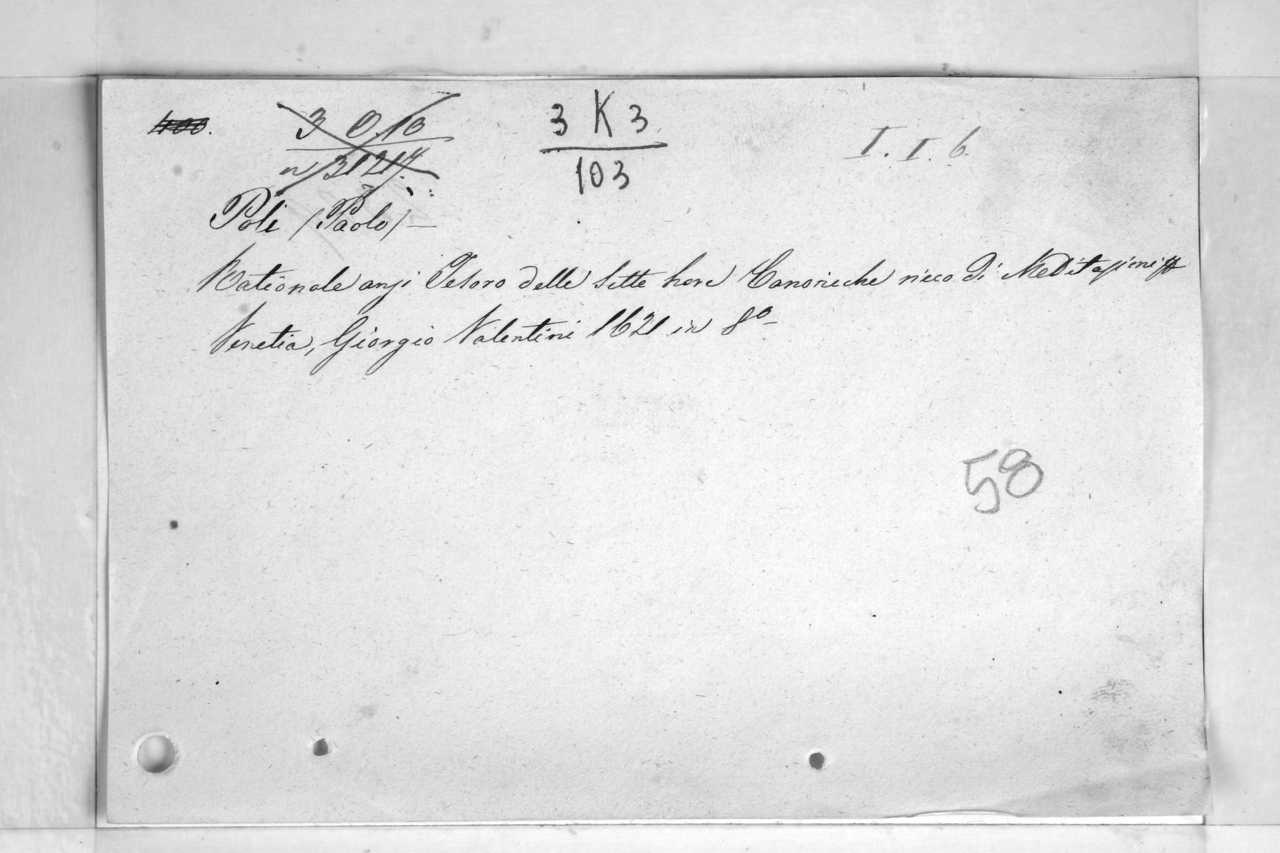 400.
3 O 10
n 31217.
3 K 3
103
I. I. 6.
Poli (Paolo) —
Rationale anzi Tesoro delle sette hore Canoniche ricco di Meditazioni
Venetia, Giorgio Valentini 1621 in 8º —
58